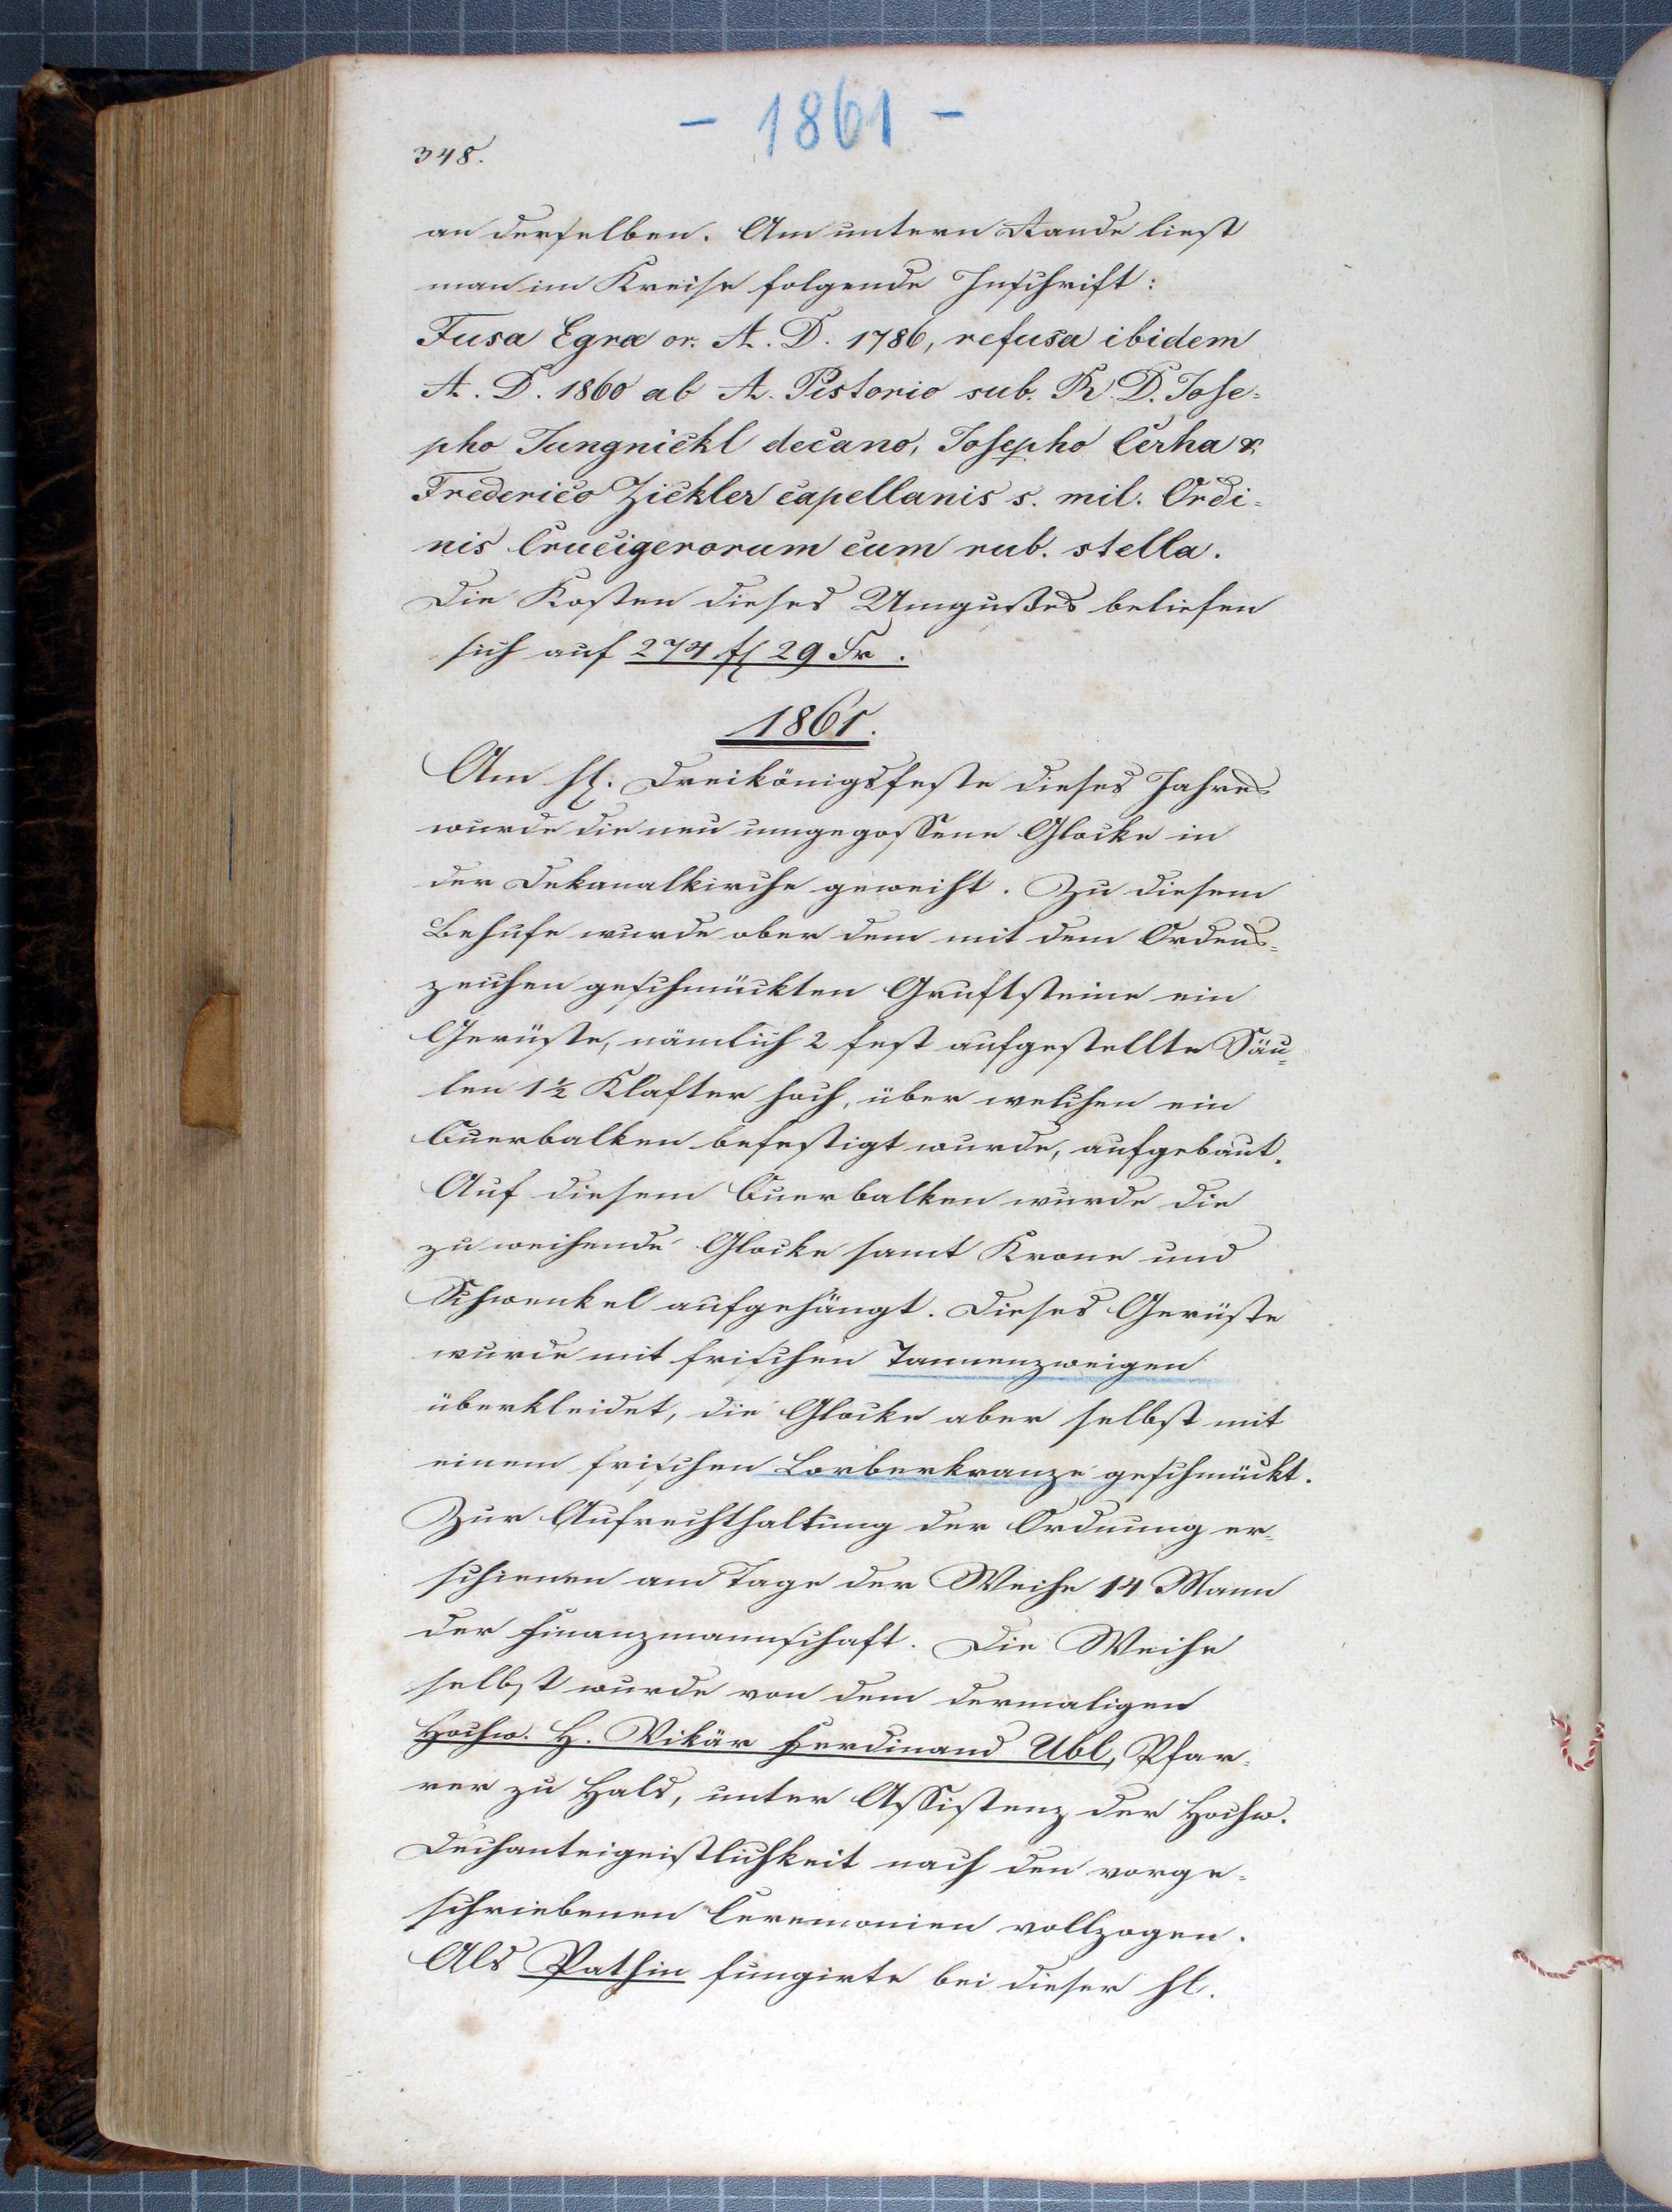 - 1861 -
348.
an derselben. Am untern Rande liest
man im Kreise folgende Inschrift:
Fusa Egræ or. A. D. 1786, refusa ibidem
A. D. 1860 ab A. Pistorio sub. R. D. Jose=
pho Jungnickl decano, Josepho Cerha &
Frederico Zickler capellanis s. mil. Ordi=
nis Crucigerorum cum rub. stella.
Die Kosten dieses Umgußes beliefen
sich auf 274 fl 29 kr.
1861.
Am hl. Dreikönigsfeste dieses Jahres
wurde die neu umgegossene Glocke in
der Dekanalkirche geweiht. Zu diesem
Behufe wurde ober dem mit dem Ordens=
zeichen geschmückten Gruftsteine ein
Gerüste, nämlich 2 fest aufgestellte Säu=
len 1½ Klafter hoch, über welchen ein
Querbalken befestigt wurde, aufgebaut.
Auf diesem Querbalken wurde die
zu weihende Glocke samt Krone und
Schwenkel aufgehängt. Dieses Gerüste
wurde mit frischen Tannenzweigen
überkleidet, die Glocke aber selbst mit
einem frischen Lorberkranze geschmückt.
Zur Aufrechthaltung der Ordnung er=
schienen am Tage der Weihe 14 Mann
der Finanzmannschaft. Die Weihe
selbst wurde von dem dermaligen
Hochw. H. Vikär Ferdinand Ubl, Pfar=
rer zu Hals, unter Assistenz der Hochw.
Dechanteigeistlichkeit nach den vorge=
schriebenen Ceremonien vollzogen.
Als Pathin fungirte bei dieser hl.